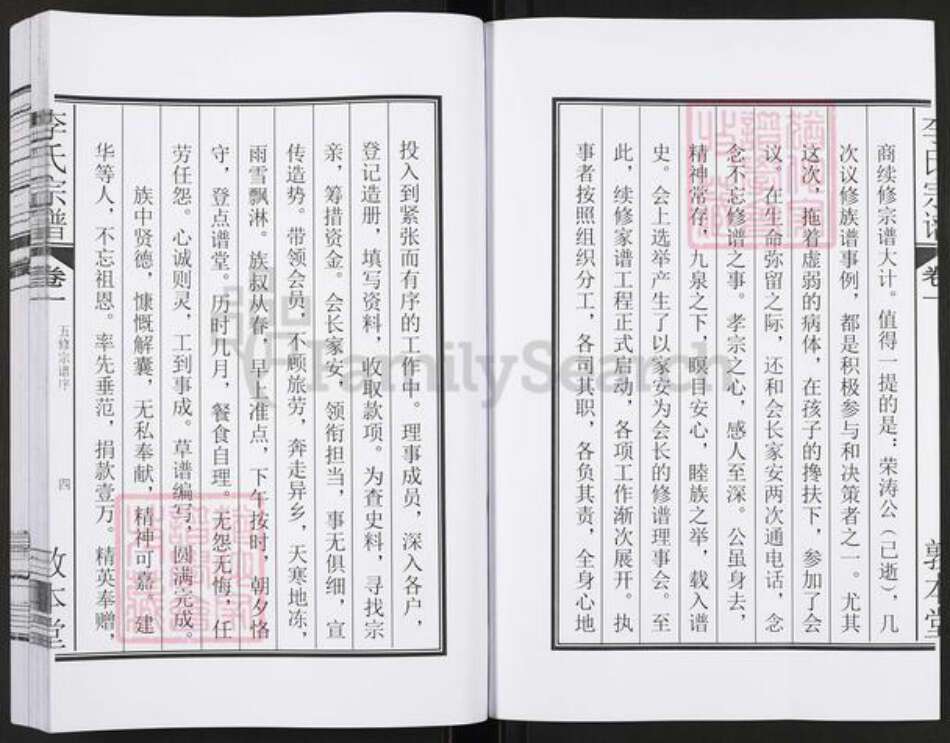 李氏宗谱
卷一
敦本堂
商续修宗谱大计。值得一提的是：荣涛公（已逝），几
次议修族谱事例，都是积极参与和决策者之一。尤其
这次，拖着虚弱的病体，在孩子的搀扶下，参加了会
议。在生命弥留之际，还和会长家安两次通电话，念
念不忘修谱之事。孝宗之心，感人至深。公虽身去，
精神常存，九泉之下，瞑目安心，睦族之举，载入谱
史。会上选举产生了以家安为会长的修谱理事会。至
此，续修家谱工程正式启动，各项工作渐次展开。执
事者按照组织分工，各司其职，各负其责，全身心地
投入到紧张而有序的工作中。理事成员，深入各户，
登记造册，填写资料，收取款项。为查史料，寻找宗
亲，筹措资金。会长家安，领衔担当，事无俱细，宣
传造势。带领会员，不顾旅劳，奔走异乡，天寒地冻，
雨雪飘淋。族叔从春，早上准点，下午按时，朝夕恪
守，登点谱堂。历时几月，餐食自理。无怨无悔，任
劳任怨。心诚则灵，工到事成。草谱编写，圆满完成。
族中贤德，慷慨解囊，无私奉献，精神可嘉。建
华等人，不忘祖恩。率先垂范，捐款壹万。精英奉赠，
李氏宗谱
卷一
五修宗谱序
四
敦本堂
FamilySearch